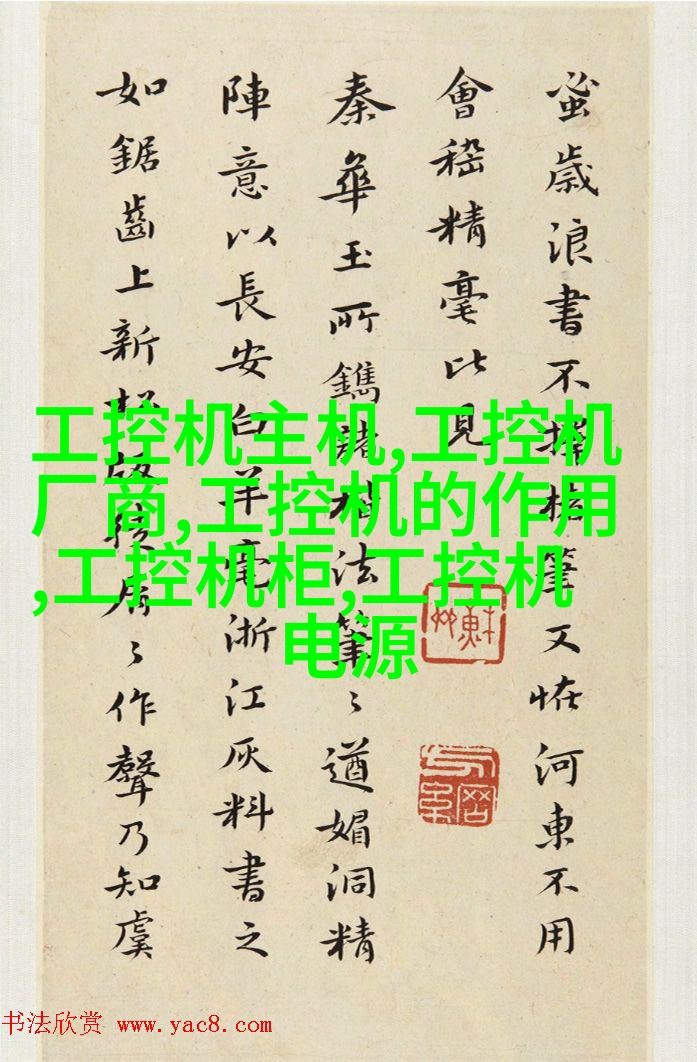 蚤歲浪書不擇楮筆又恠河東不用
會稽精毫比見
秦華玉所鐫諸楷法筆々遒媚洞精
陣意以長安白羊毫浙江灰料書之
如鋸齒上新松版作聲乃知虞
工控机主机,工控机
厂商,工控机的作用
,工控机柜,工控机
电源
书法欣赏 www.yac8.com